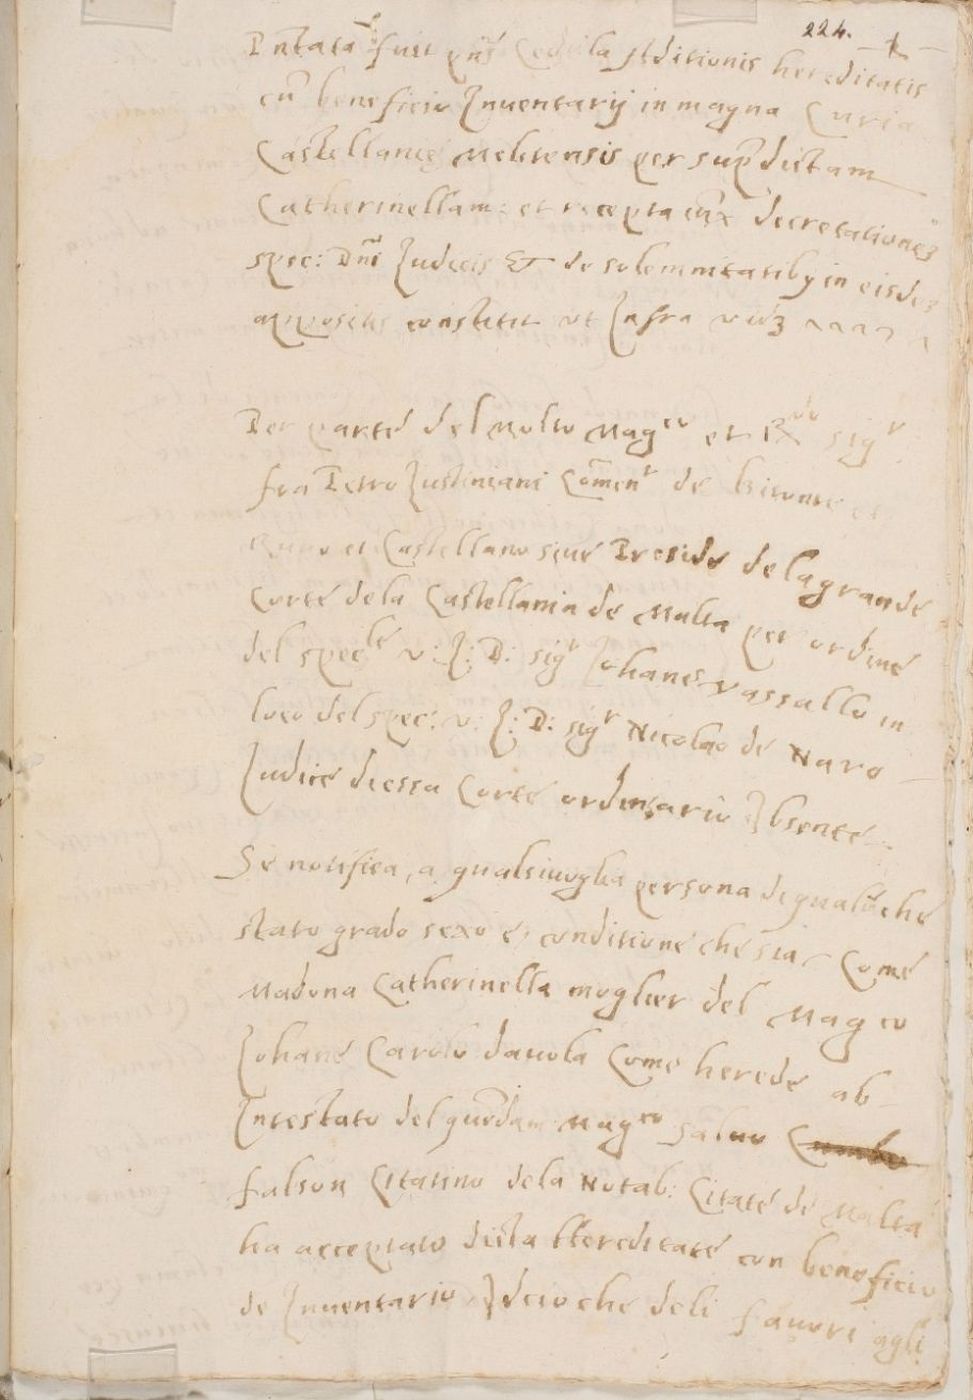 224.
Pñtata fuit pñs Cedula Aditionis hereditatis
cũ beneficio Inventarij in magna Curia
Castellanie Melitensis per supᵃdictam
Catherinellam: et recepta decretationeȝ
spec: Dñi Iudicis Et de solemnitatibȝ in eisdeȝ
appositis constitit ut Infra vidȝ
Per parte del Molto Magᶜᵒ et Rᵈᵒ sigʳ
fra Petro Iustiniani Comenʳ de Bitonte et
et Castellano sive Preside dela grande
Corte dela Castellania de Malta per ordine
del specˡᵉ v: I: D: sigʳ Iohanes vassallo in
loco del spec: v: I: D: sigʳ Nicolao de Naro
Iudice diessa Corte ordinario Absente
Se notifica, a qualsivoglia persona de qualũche
stato grado sexo e conditione che sia Come
Madona Catherinella moglier del Magᶜᵒ
Iohane Carolo davola Come herede ab
Intestato del quõdam Magᶜᵒ Salvo Cumbo
falson Citatino dela Notab: Citate de Malta
ha acceptato dicta Hereditate con beneficio
de Inventario Acio che deli favori agli